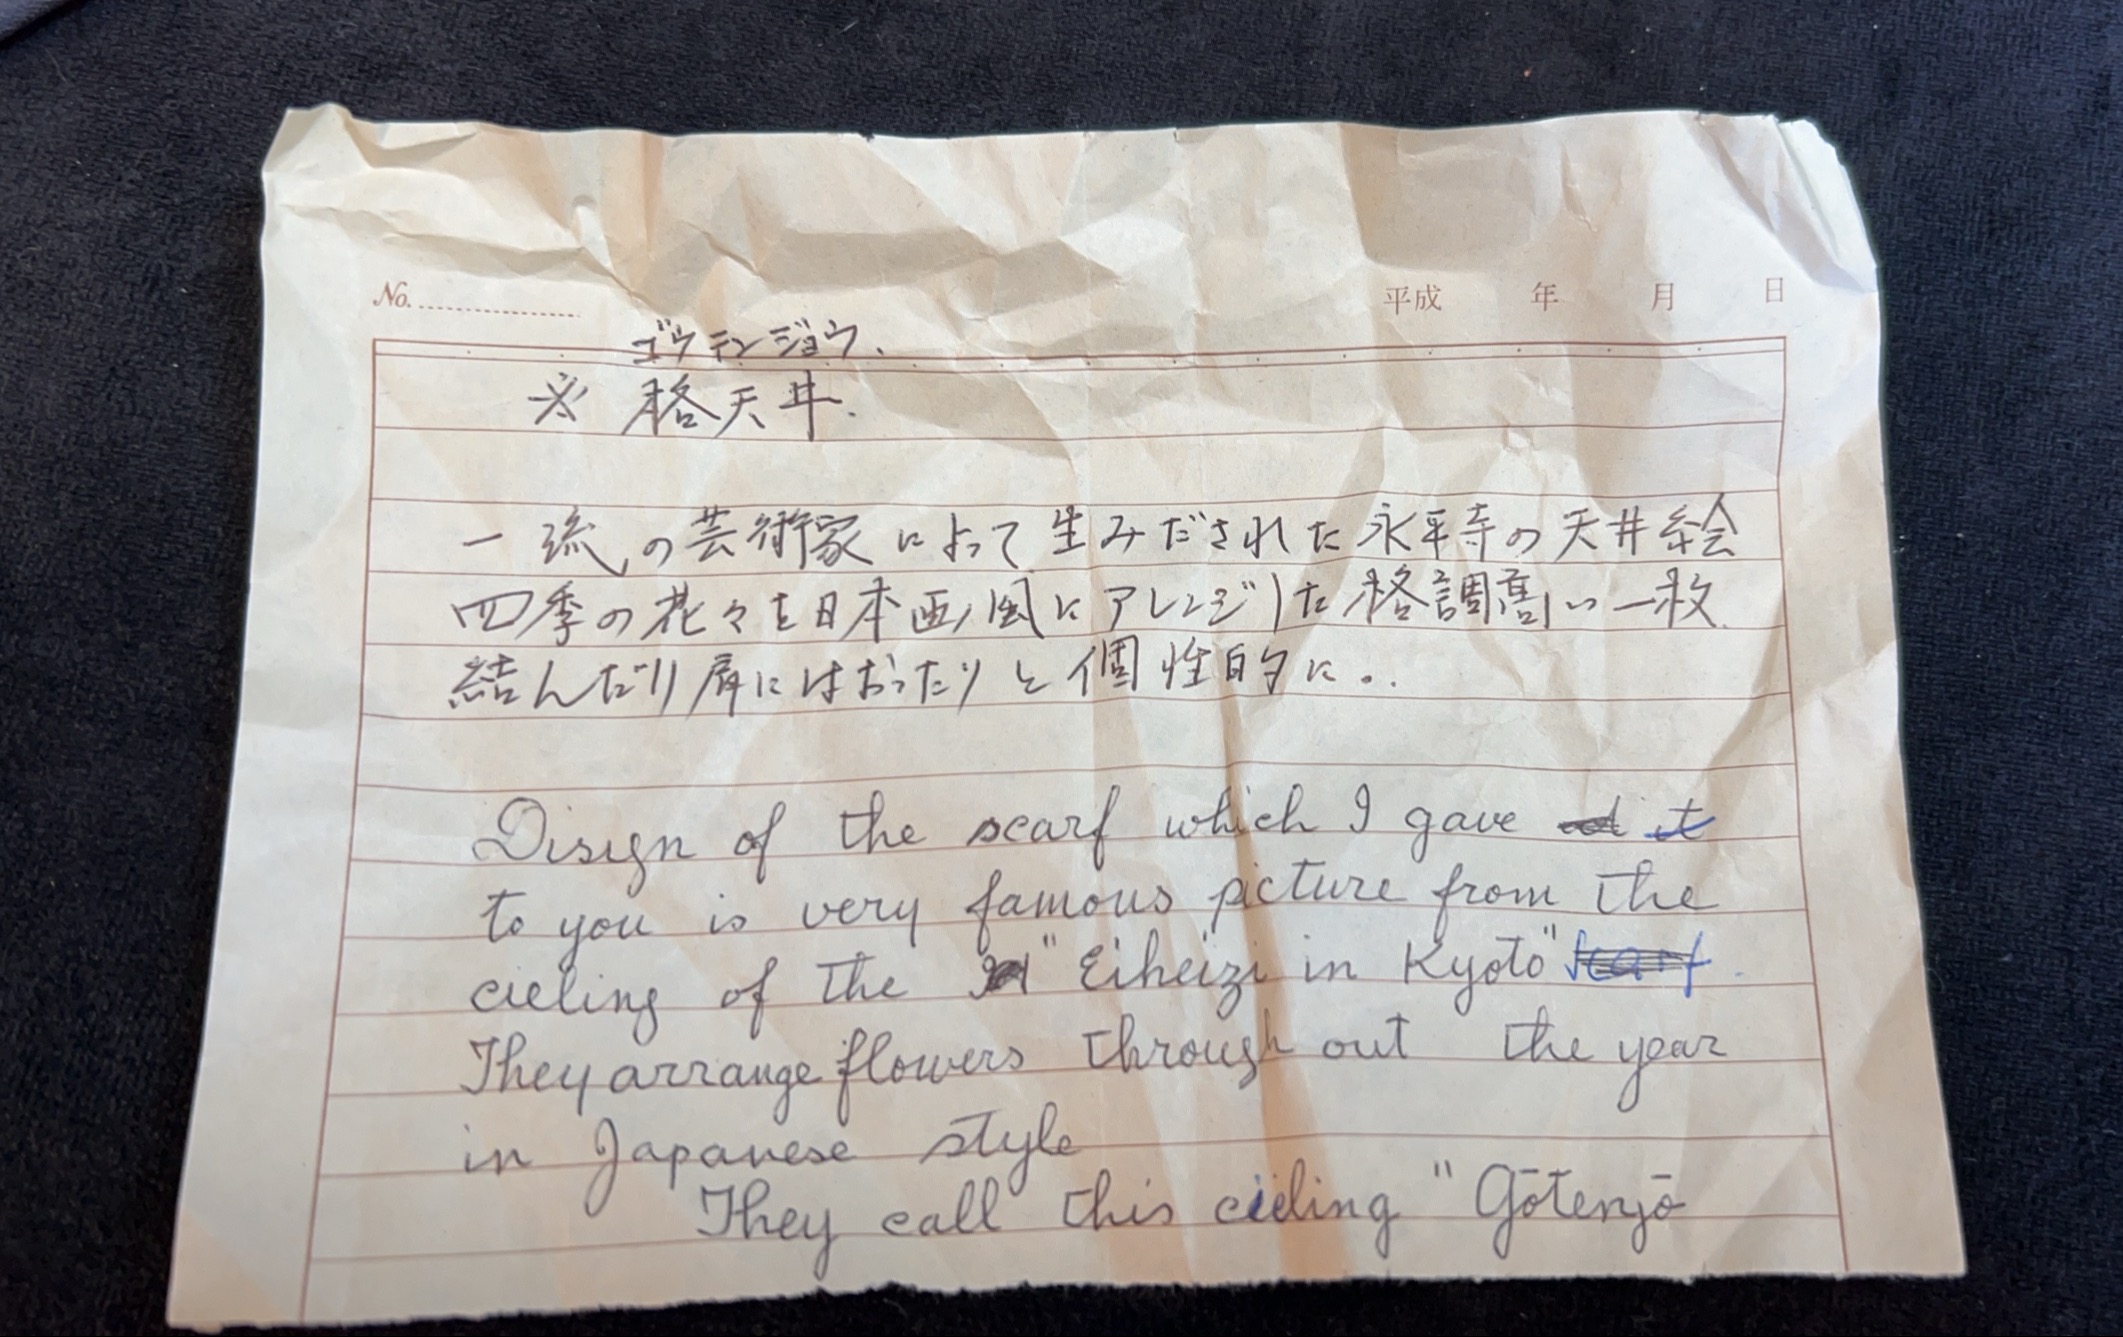 No.
平成 年 月 日
ゴウテンジョウ.
※ 格天井.
一流の芸術家によって生みだされた永平寺の天井絵
四季の花々を日本画風にアレンジした格調高い一枚.
結んだり肩にはおったりと個性的に..
Disign of the scarf which I gave it
to you is very famous picture from the
cieling of the "Eiheizi in Kyoto" scarf.
They arrange flowers through out the year
in Japanese style
They call this cieling "Gōtenjō